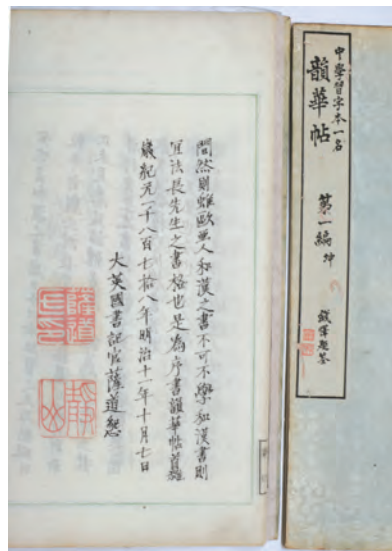 中學習字本一名
韻華帖 第一編 坤
間然則雖歐亜人和漢之書不可不學和漢書則
宜法長先生之書格也是為序書韻華帖首維
歲紀元一千八百七拾八年明治十一年十月七日
大英國書記官薩道
薩道
靜山